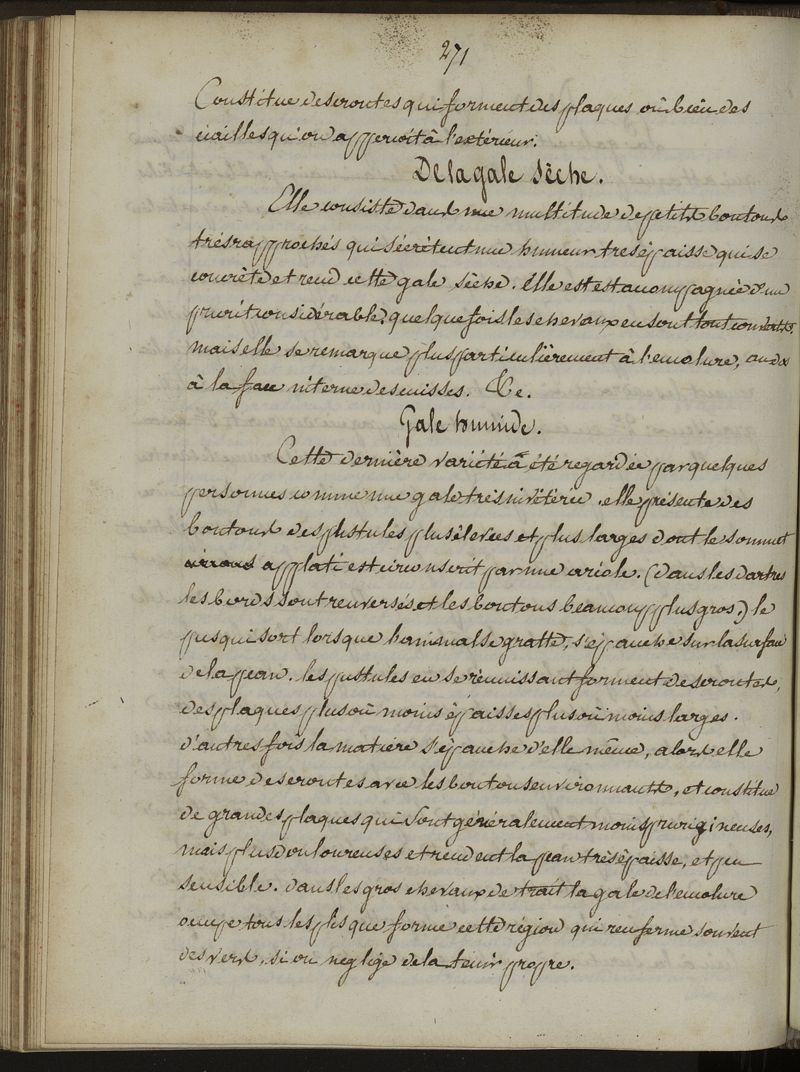 271
Constitue des croutes qui forment des plaques où bien des
écailles qu'on apperçoit à l'extérieur.
De la gale sèche.
Elle consiste dans une multitude de petits boutons
très rapprochés qui sécrètent une humeur très épaisse qui se
concrète et rend cette gale sèche. Elle est est accompagnée d'un
prurit considérable, quelque fois les chevaux en sont tout couverts,
mais elle se remarque plus particulièrement à l'encolure, au dos
à la face interne des cuisses. &c.
Gale humide.
Cette dernière variété à été regardée par quelques
personnes comme une gale très invétérée. elle présente des
boutons des pustules plus élevées et plus larges dont le sommet
applati est circonscrit par une ariole. (dans les dartres
les bords sont renversés et les boutons beaucoup plus gros.) le
pus qui sort lorsque l'animal se gratte, s'épanche sur la surface
de la peau. les pustules en se réunissant forment des croutes,
des plaques plus où moins épaisses plus où moins larges.
d'autres fois la matière s'épanche d'elle même, alors elle
forme des croutes avec les boutons environnants, et constitue
de grandes plaques qui sont généralement moins prurigineuses,
mais plus douloureuses et rendent la peau très épaisse, et peu
sensible. dans les gros chevaux de trait la gale de l'encolure
occupe tous les plis que forme cette région qui renferme souvent
des vers, si on neglige de la tenir propre.